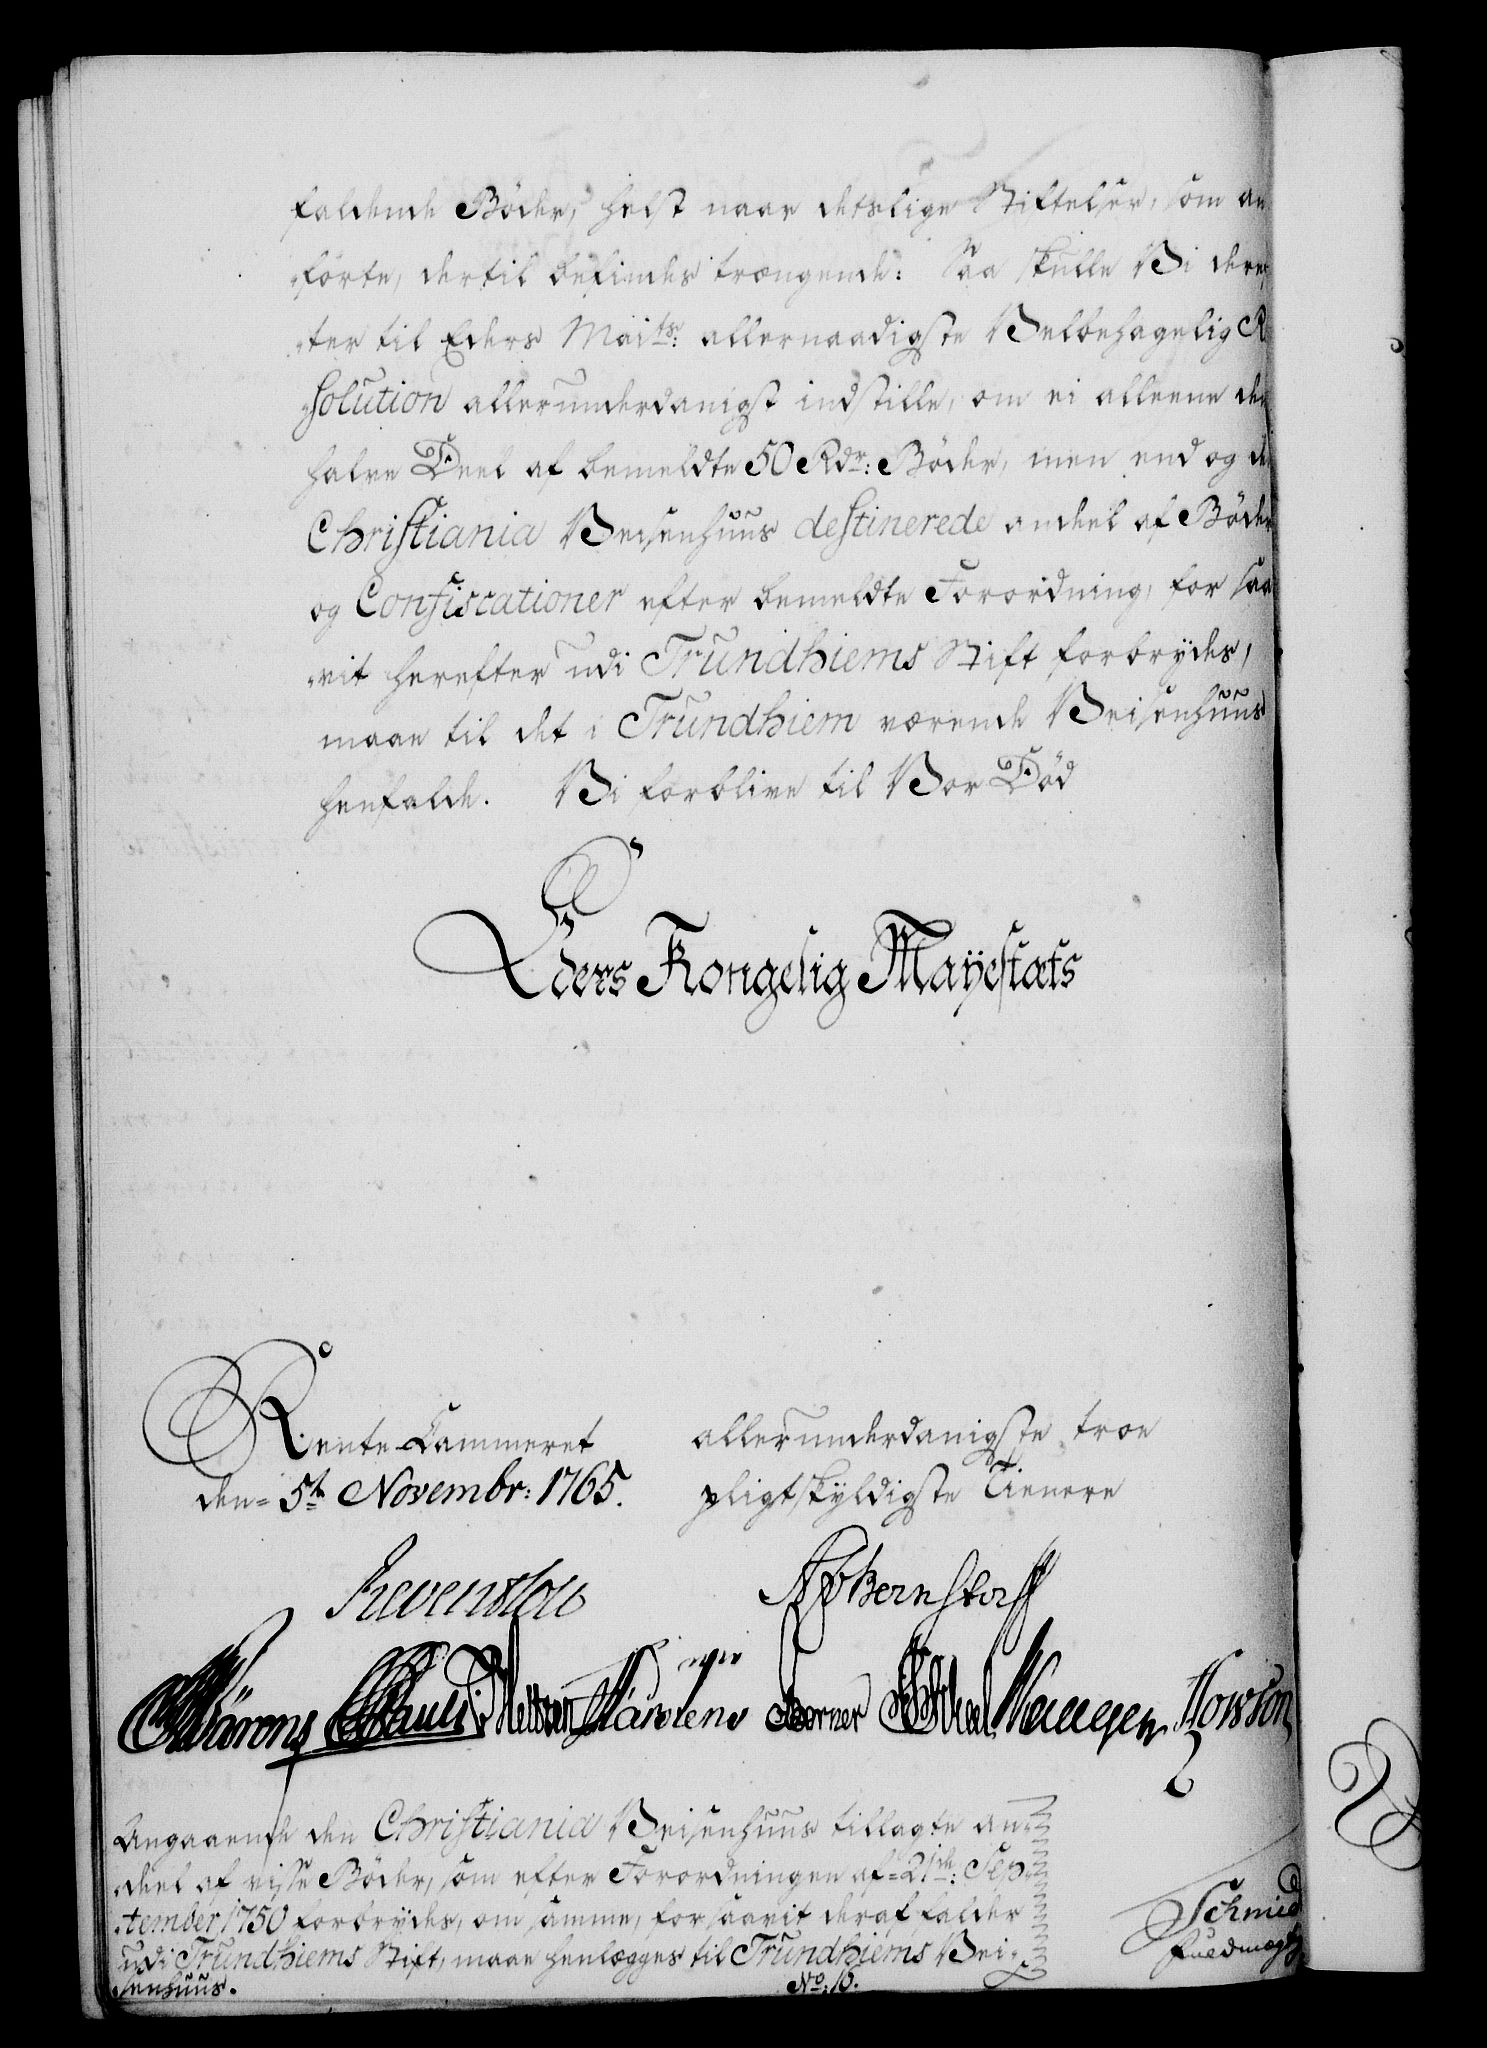 faldende Bøder, helst naar detslige Stiftelser, som an
-førte, dertil befindes trængende: Saa skulle Vi deref
-ter til Eders Maits: allernaadigste Velbehagelig Re
-solution allerunderdanigst indstille, om ei alleene den
halve Deel af bemeldte 50 Rdr: Bøder, men end og de
Christiania Veisenhuus destinerede andeel af Bøder
og Confiscationer efter bemeldte Forordning, for saa
-vit herefter udi Trundhiems Stift forbrydes,
maae til det i Trundhiem værende Veisenhuus
henfalde. Vi forblive til Vor Død
Eders Kongelig Mayestæts
Rente Cammeret
den 5te Novembr: 1765.
allerunderdanigste troe
pligtskyldigste Tienere
Reventlou
Bernstorff
Pauli
Borner
Howson
Angaaende den Christiania Veisenhuus tillagte an-
-deel af visse Bøder, som efter Forordningen af 21de: Sep-
-tember 1750 forbrydes, om samme, for saavit deraf falder
udi Trundhiems Stift, maae henlægges til Trundhiems Vei-
-senhuus.
No. 10.
Schmid
fuldmægtig